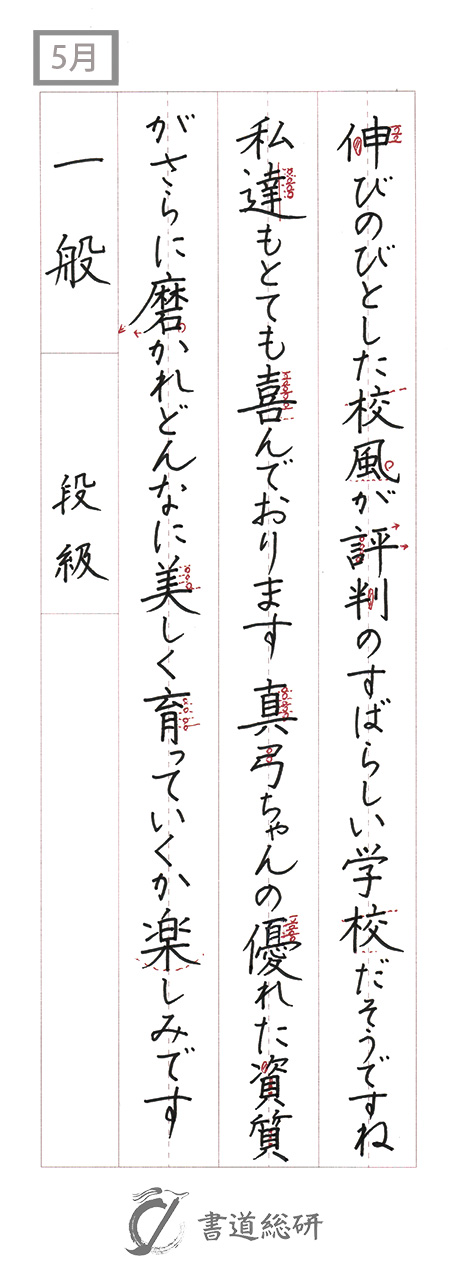 5月
伸びのびとした校風が評判のすばらしい学校だそうですね
私達もとても喜んでおります真弓ちゃんの優れた資質
がさらに磨かれどんなに美しく育っていくか楽しみです
一般
段級
書道総研